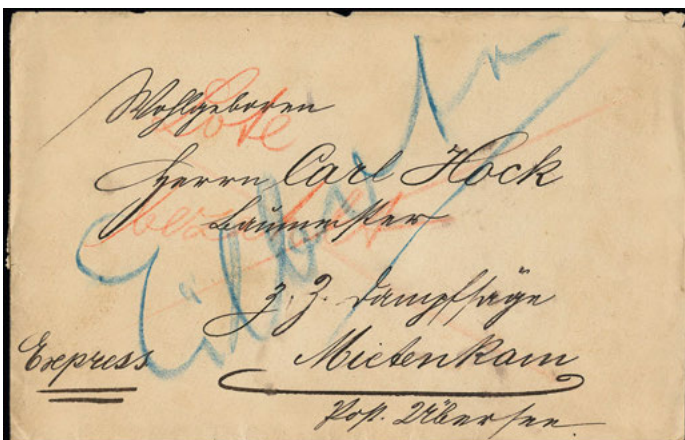 Wohlgeboren
Bote
Herrn Carl Hock
bezahlt
Baumeister
Eilbote
z. Z. Dampfsäge
Express
Mietenkam
Post. Übersee.